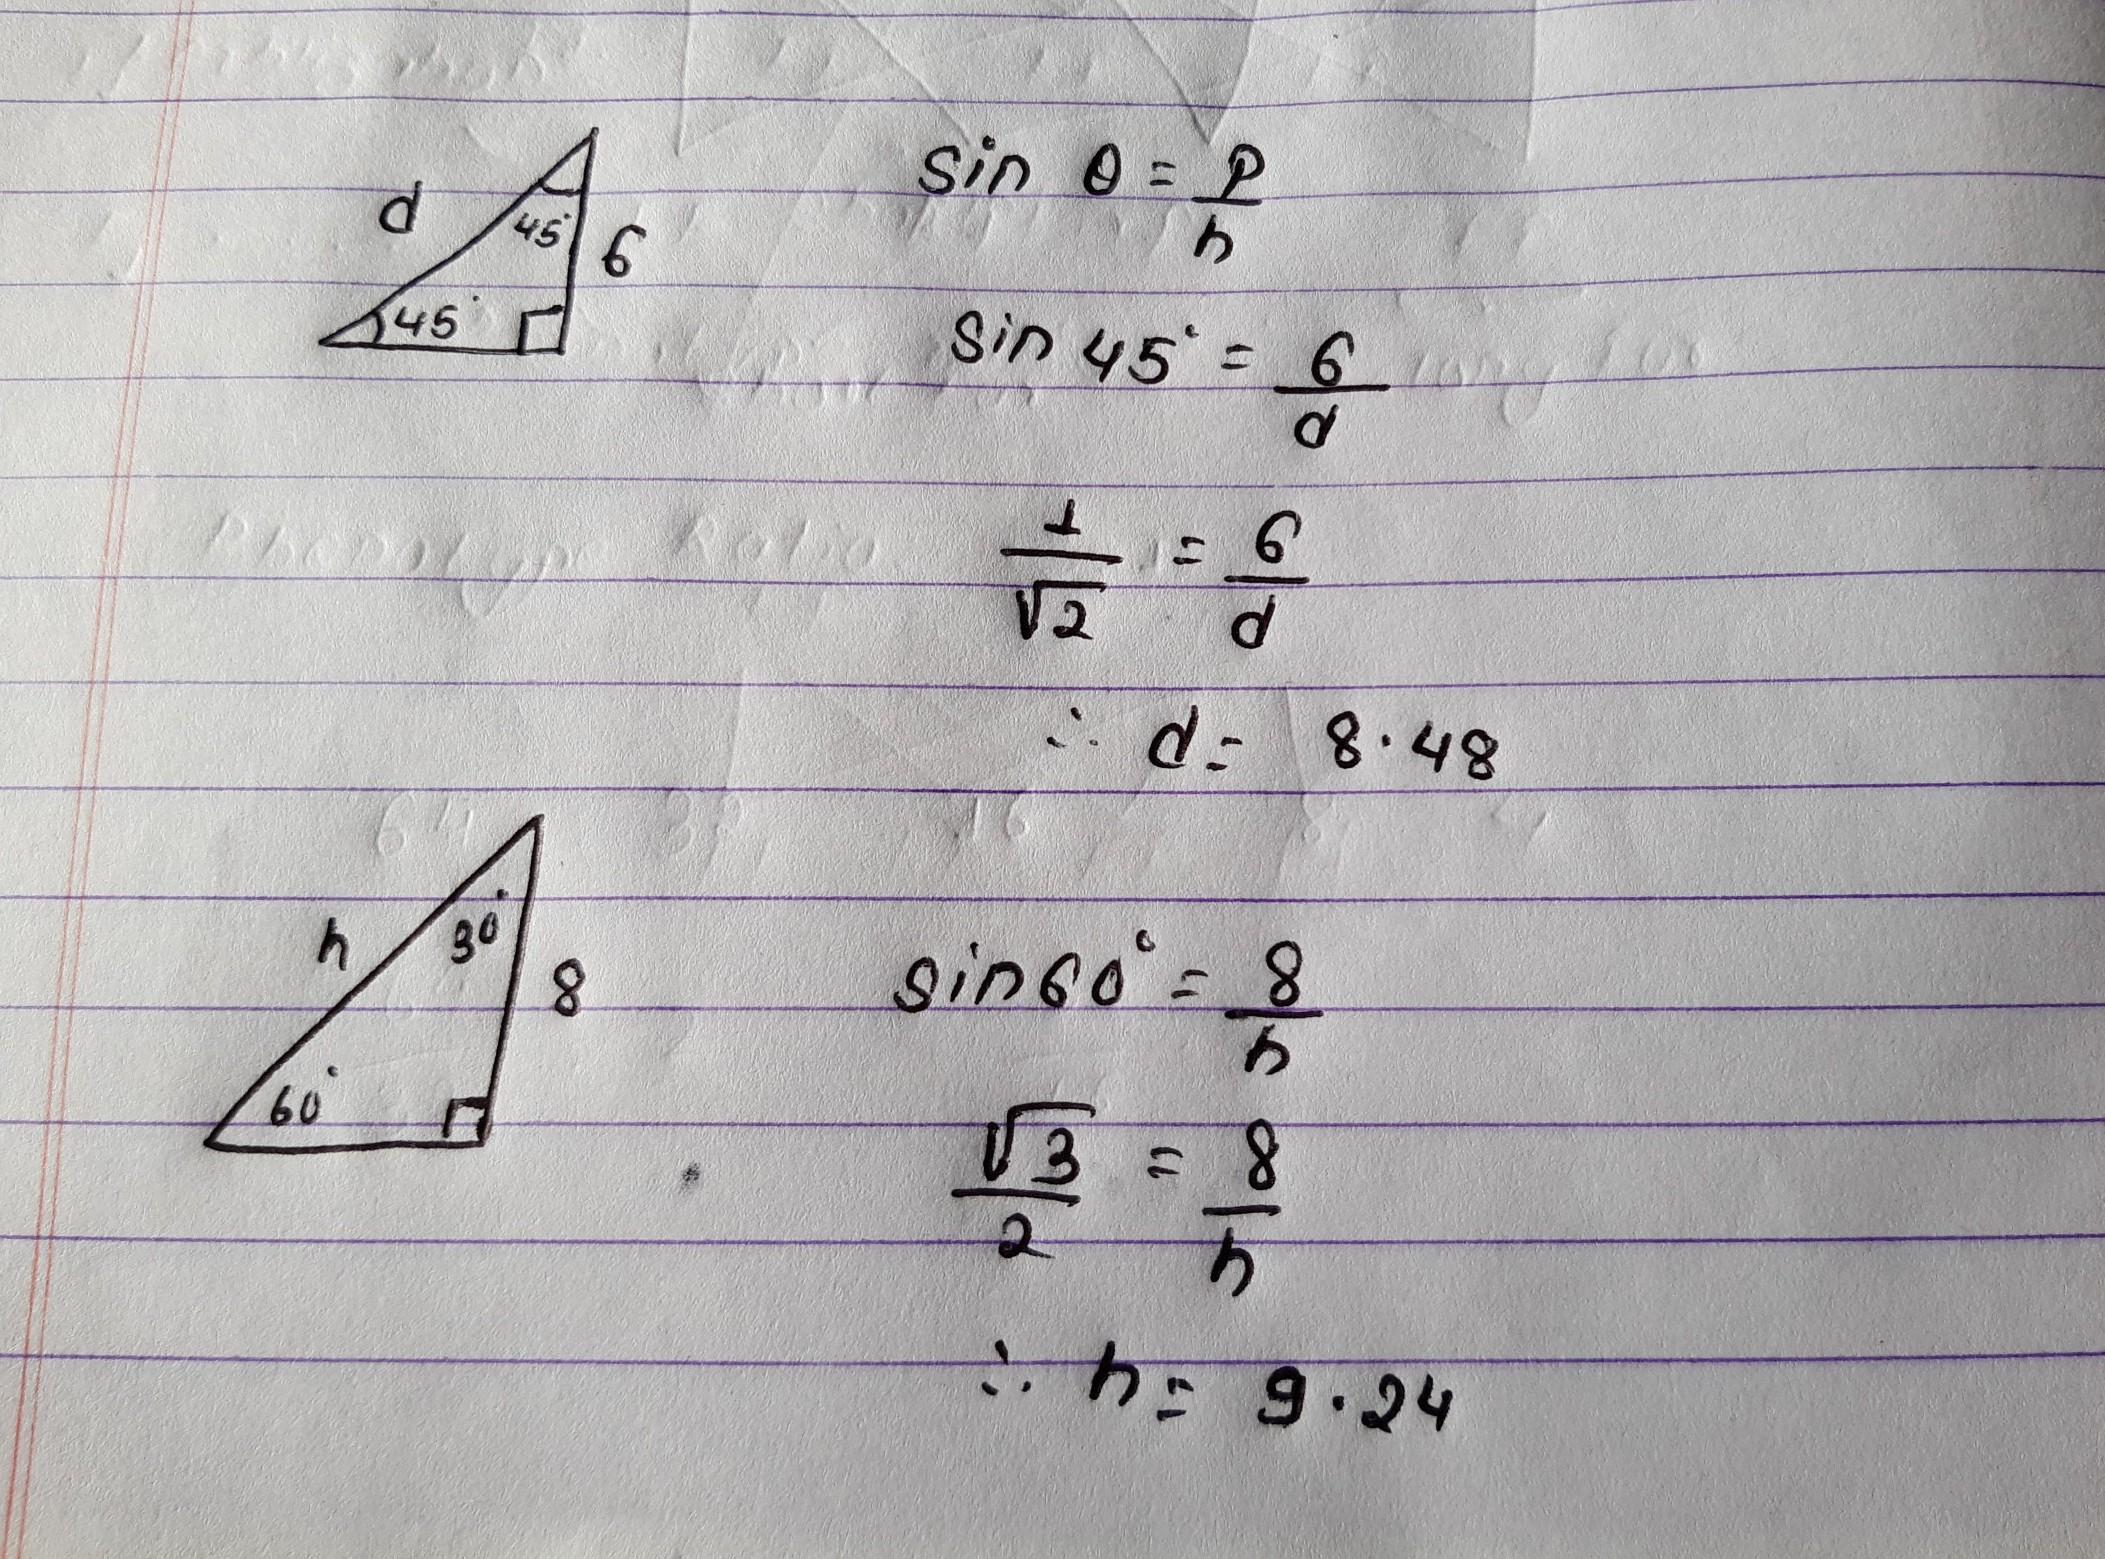 d
45°
6
45°
sin θ = p/h
sin 45° = 6/d
1/√2 = 6/d
∴ d = 8.48
h
30°
8
60°
sin 60° = 8/h
√3/2 = 8/h
∴ h = 9.24